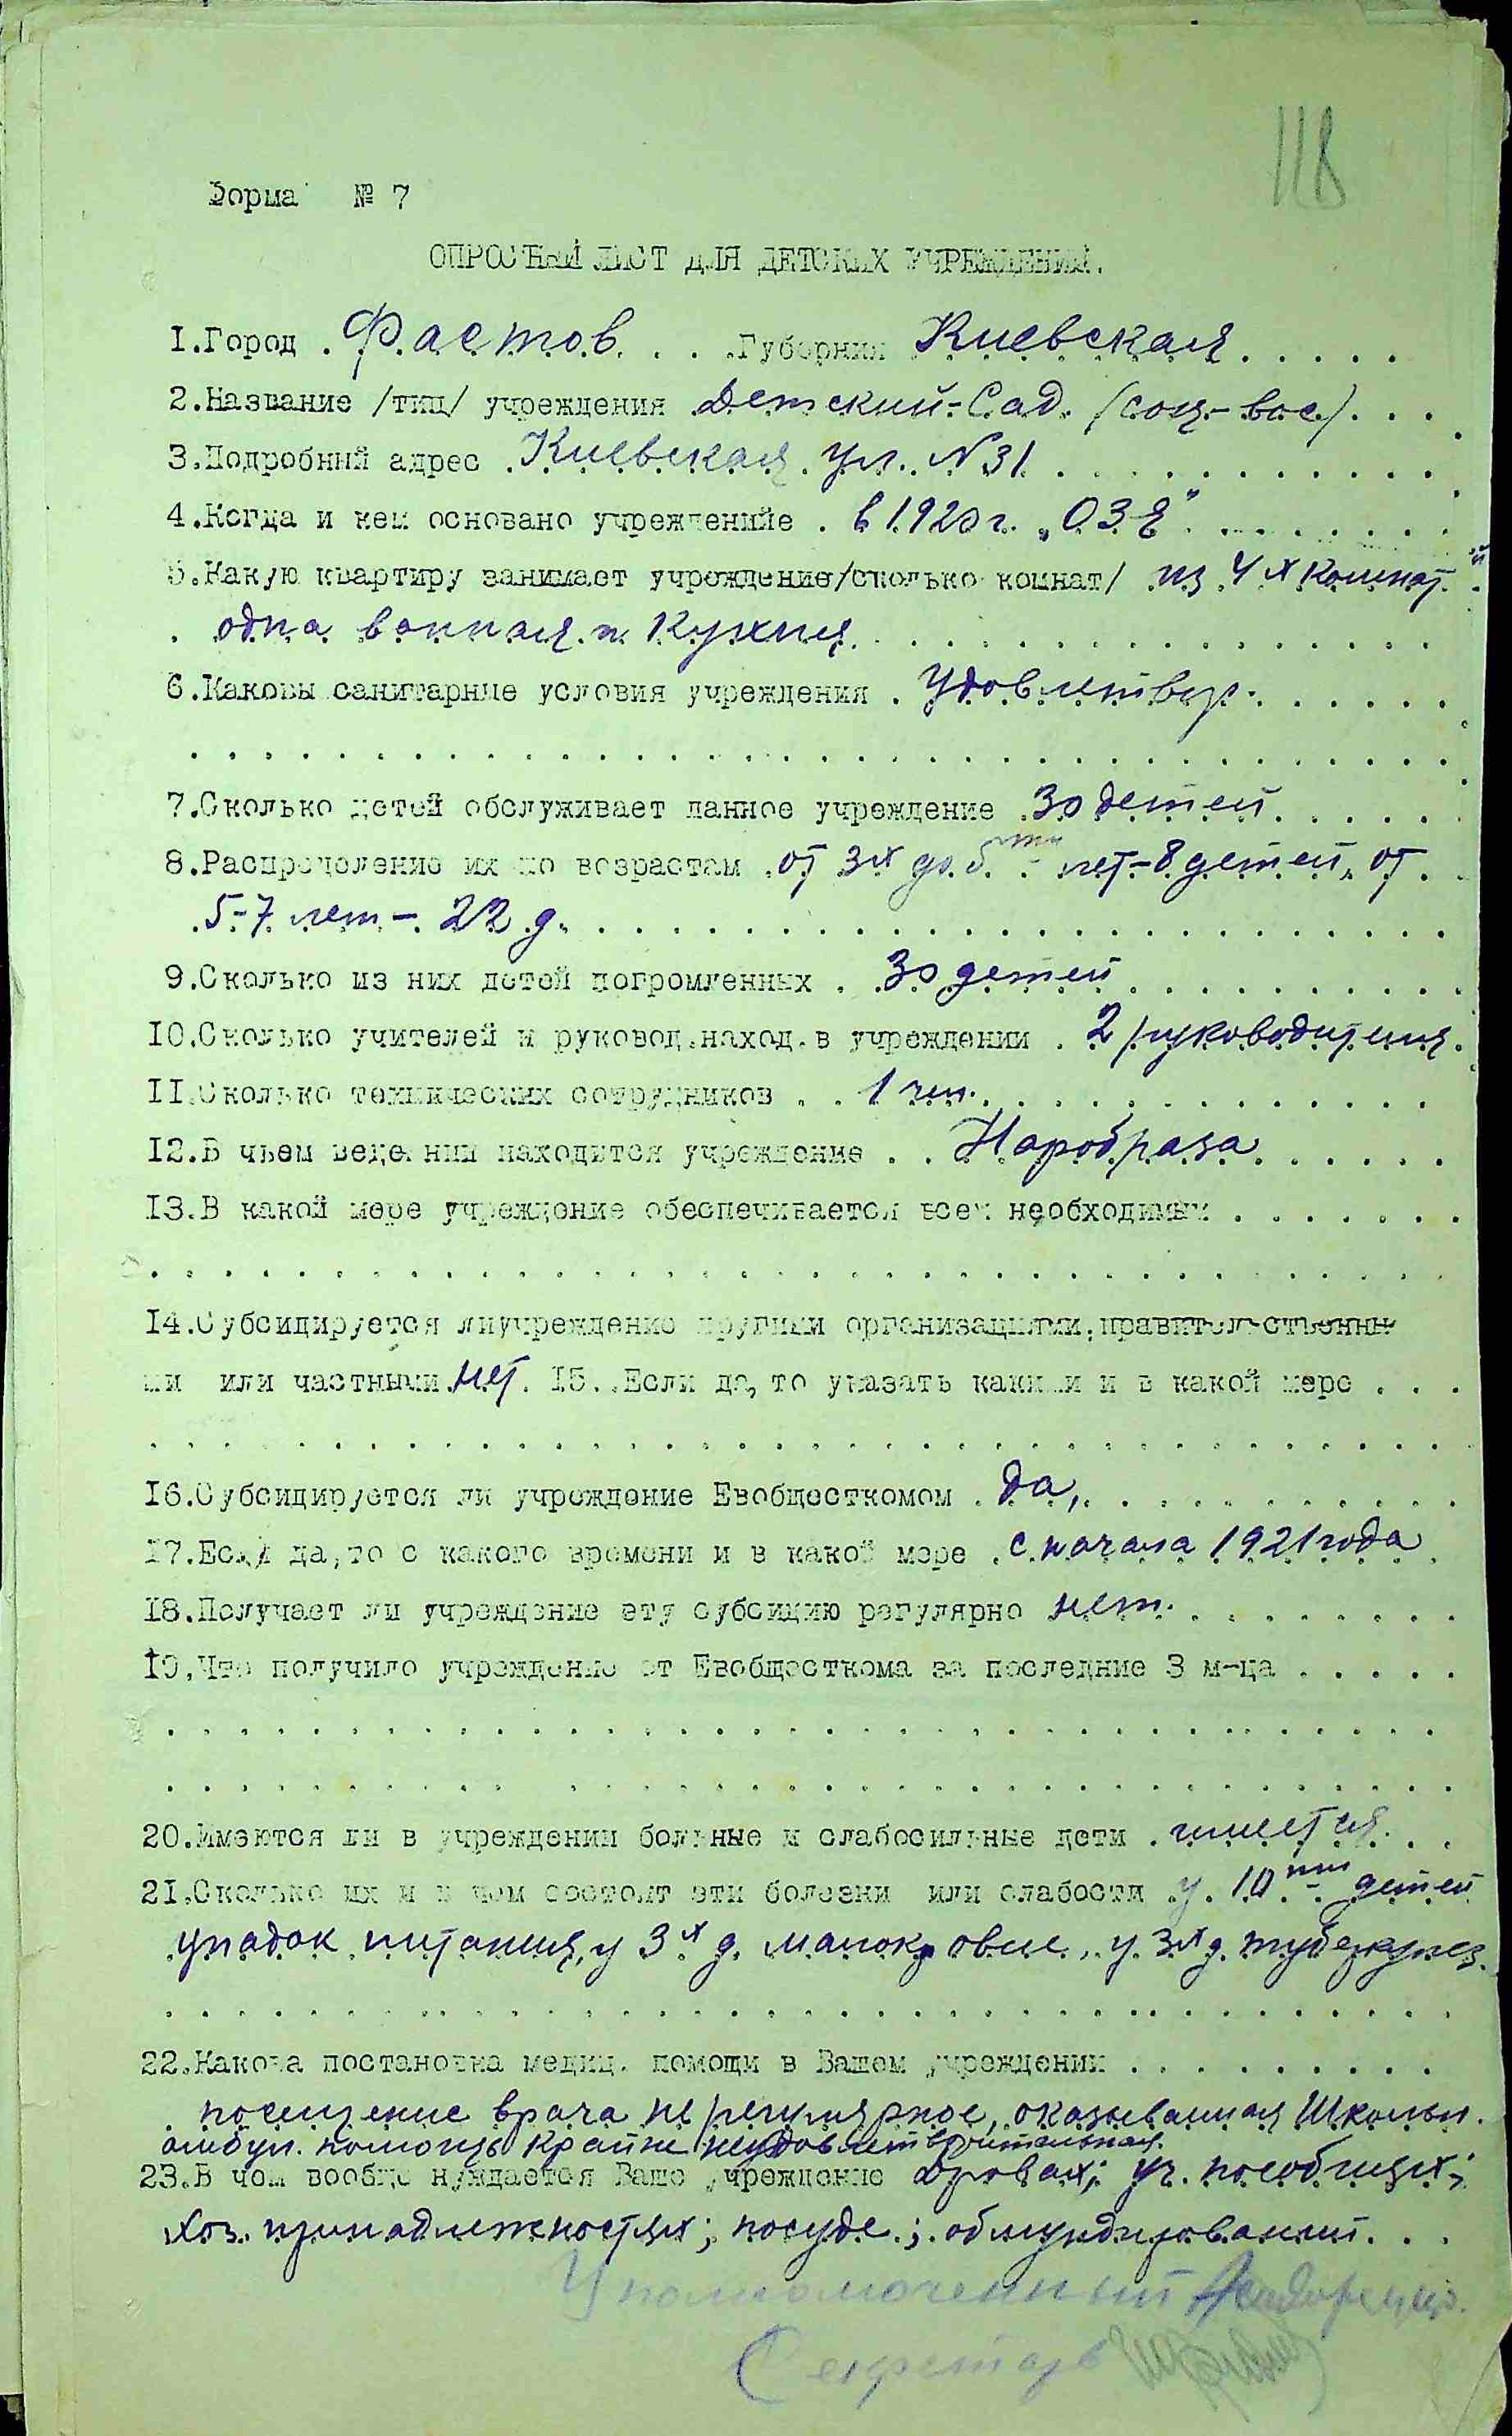 118
Форма № 7
ОПРОСНЫЙ ЛИСТ ДЛЯ ДЕТСКИХ УЧРЕЖДЕНИЙ.
1.Город . Фастов. . . .Губерния Киевская. . . . .
2.Название /тип/ учреждения Детский-Сад. (соц-вос.). . .
3.Подробный адрес . Киевская ул. N31. . . . . . . . . . . .
4.Когда и кем основано учреждениие . в 1920 г. „ОЗЕ“. . . . . . . .
5.Какую квартиру занимает учреждение/сколько комнат/ из 4х комнат
. одна ванная и кухня. . . . . . . . . . . . . . . .
6.Каковы санитарные условия учреждения . Удовлетвор. . . . . . .
7.Сколько детей обслуживает данное учреждение .30 детей. . . . .
8.Распределение их по возрастам .от 3х до 5ти лет-8 детей, от .
.5-7 лет - 22 д. . . . . . . . . . . . . . . . . . . . .
9.Сколько из них детей погромленных . . 30 детей . . . . . . . . . .
10.Сколько учителей и руковод.наход.в учреждении . 2 руководителя.
11.Сколько технических сотрудников . . 1 чел. . . . . . . . . . . . .
12.В чьем веде нии находится учреждение . . Наробраза . . . . . .
13.В какой мере учреждение обеспечивается всем необходимым . . . . . . .
14.Субсидируется лиучреждение другими организациями,правительственны
ми или частными.нет. 15. .Если да,то указать какими и в какой мере . . .
16.Субсидируется ли учреждение Евобщесткомом . да, . . . . . . . . . .
17.Если да,то с какого времени и в какой мере . с начала 1921 года .
18.Получает ли учреждение эту субсидию регулярно нет. . . . . . . . .
19.Что получило учреждение от Евобщесткома за последние 3 м-ца . . . . .
20.Имеются ли в учреждении больные и слабосильные дети . имеется. . .
21.Сколько их и в чем состоят эти болезни или слабости у 10ти детей
упадок питания, у 3х д. малокровие, у 3х д. туберкулез.
22.Какова постановка медиц. помощи в Вашем учреждении . . . . . . . . .
. посещение врача не регулярное, оказываемая Школьн.
амбул. помощь крайне неудовлетворительная.
23.В чем вообще нуждается Ваше учреждение дровах; уч. пособиях;
хоз. принадлежностях; посуде ; обмундировании. . .
Уполномоченный
Секретарь